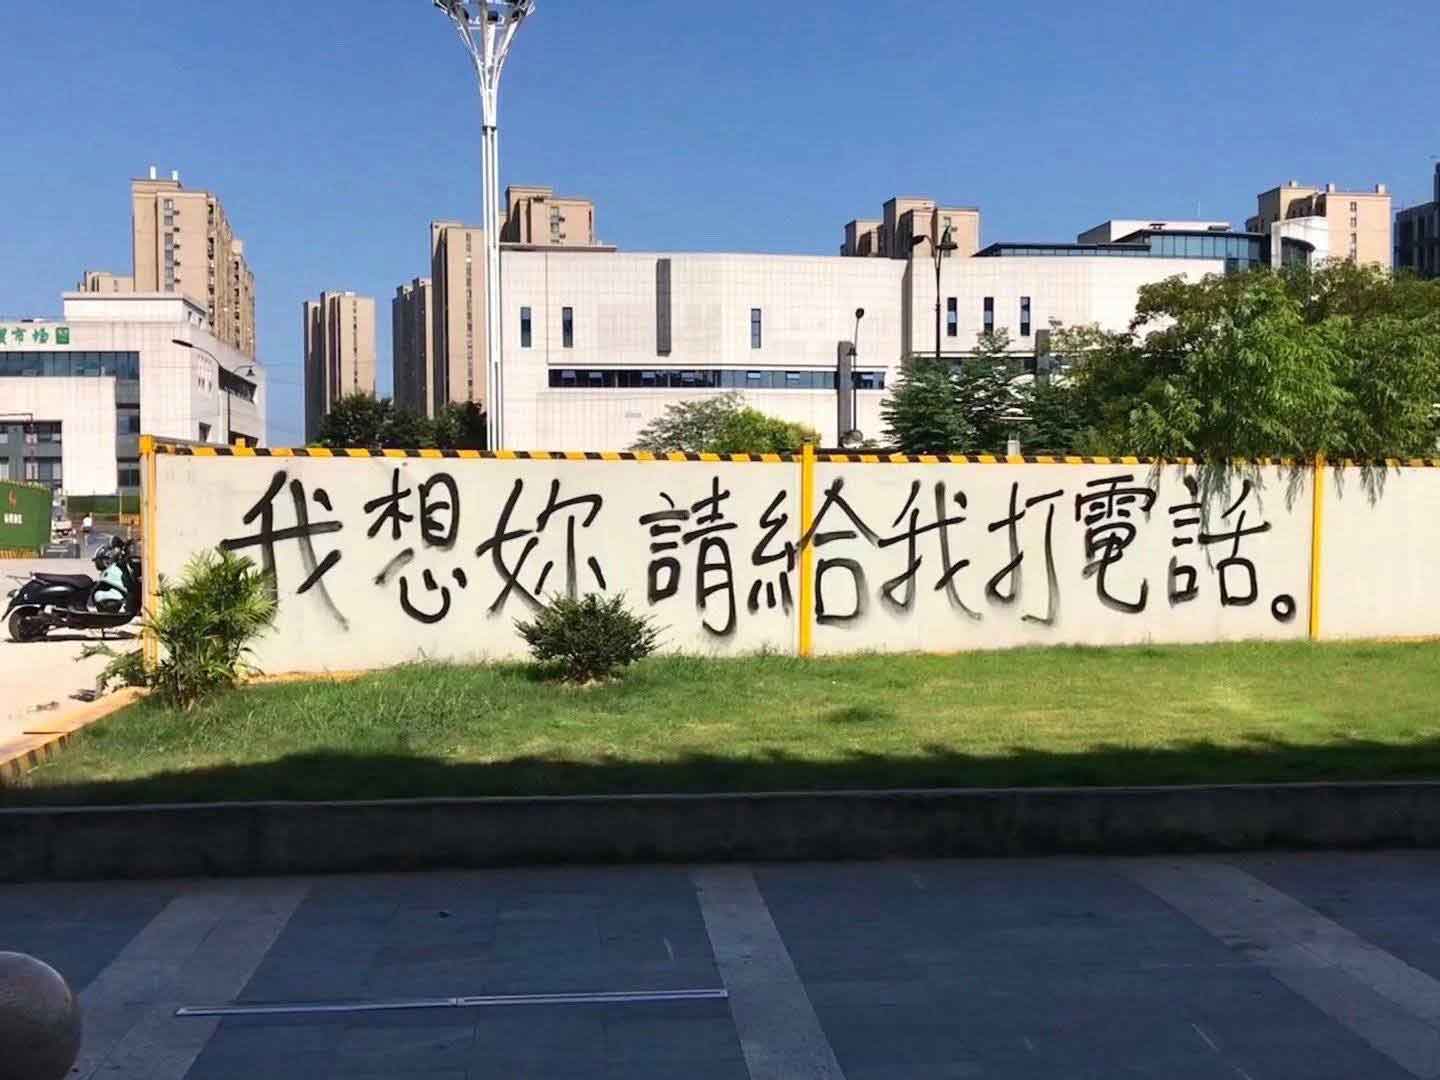 市场
我想妳 請給我打電話。